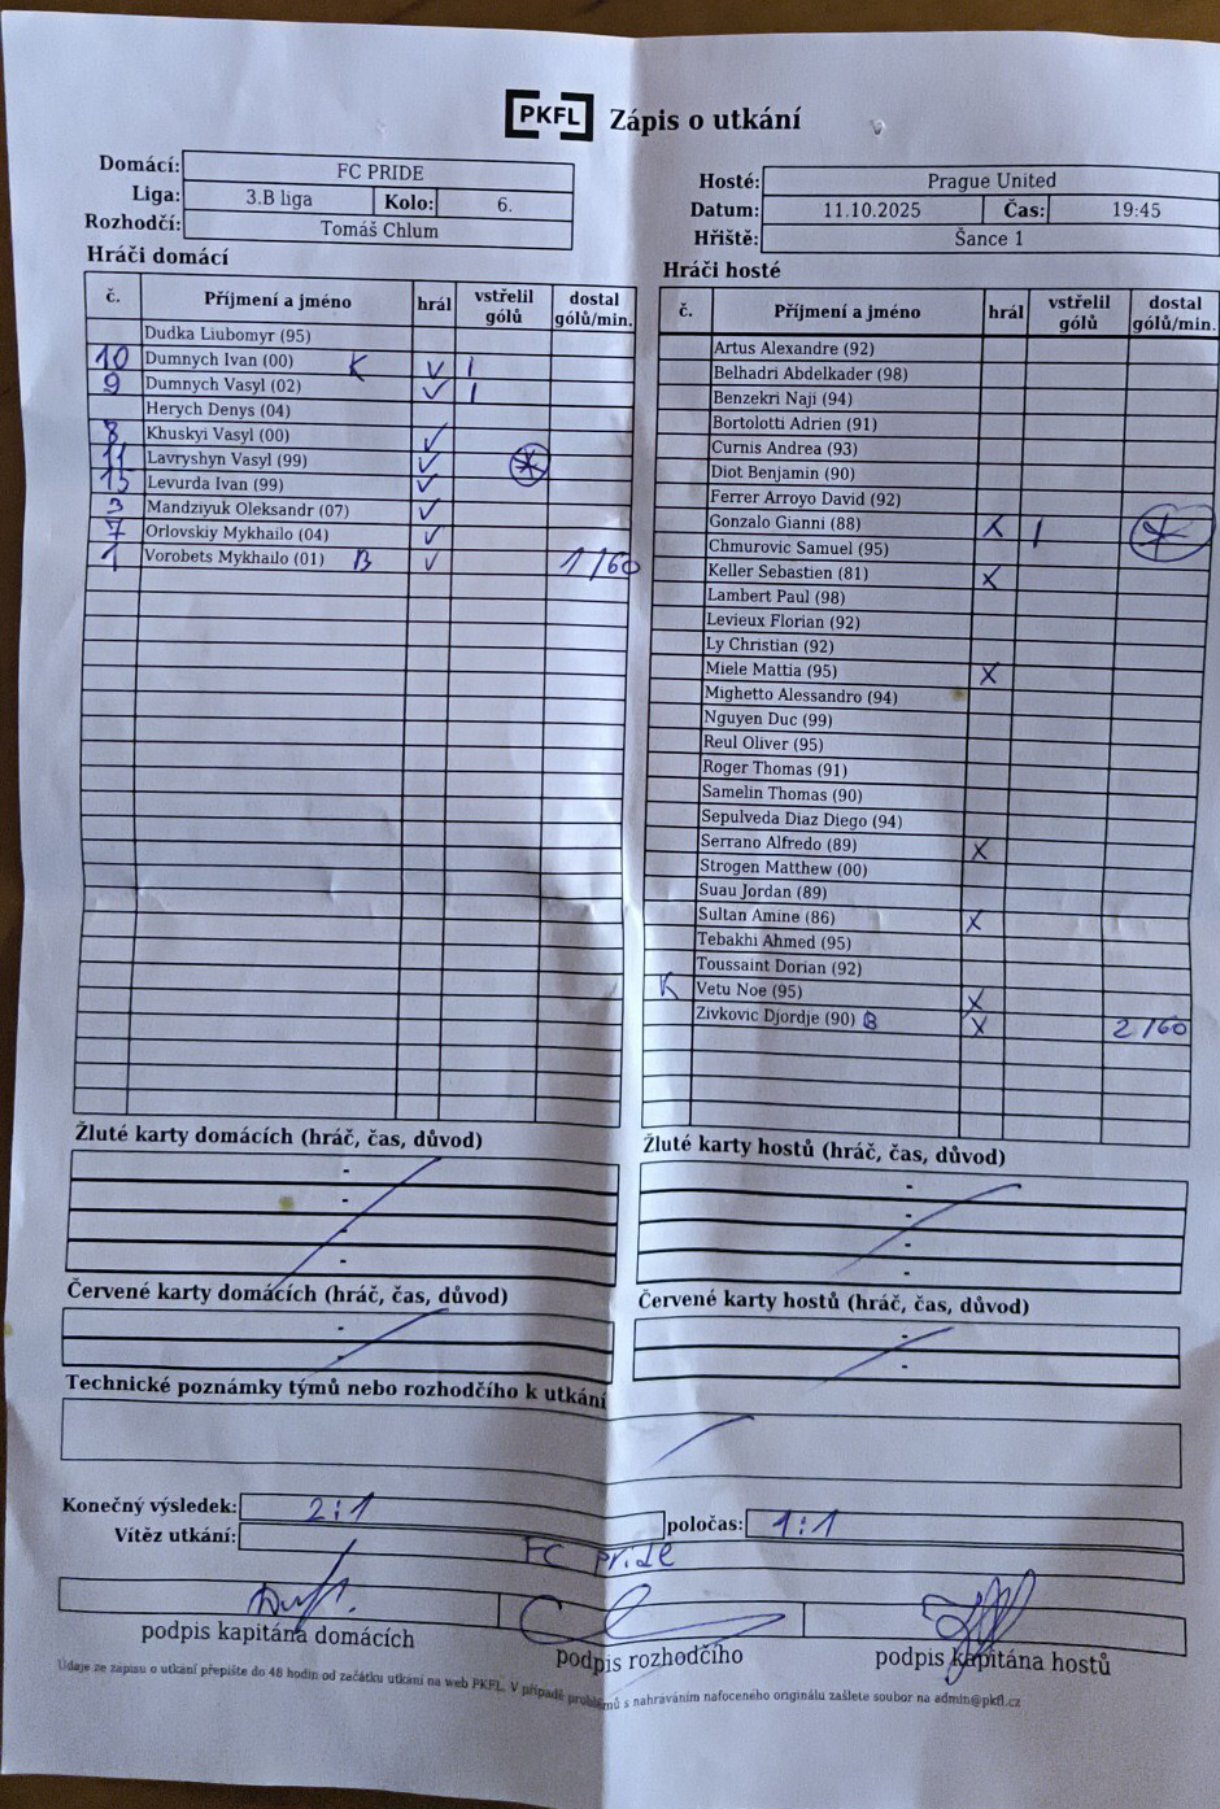 PKFL Zápis o utkání
Domácí: FC PRIDE
Liga: 3.B liga Kolo: 6.
Rozhodčí: Tomáš Chlum
Hosté: Prague United
Datum: 11.10.2025 Čas: 19:45
Hřiště: Šance 1
Hráči domácí
č. Příjmení a jméno hrál vstřelil gólů dostal gólů/min.
Dudka Liubomyr (95)
10 Dumnych Ivan (00) K ✓ 1
9 Dumnych Vasyl (02) ✓ 1
Herych Denys (04)
8 Khuskyi Vasyl (00) ✓
11 Lavryshyn Vasyl (99) ✓ *
15 Levurda Ivan (99) ✓
3 Mandziyuk Oleksandr (07) ✓
7 Orlovskiy Mykhailo (04) ✓
1 Vorobets Mykhailo (01) B ✓ 1/60
Hráči hosté
č. Příjmení a jméno hrál vstřelil gólů dostal gólů/min.
Artus Alexandre (92)
Belhadri Abdelkader (98)
Benzekri Naji (94)
Bortolotti Adrien (91)
Curnis Andrea (93)
Diot Benjamin (90)
Ferrer Arroyo David (92)
Gonzalo Gianni (88) X 1 *
Chmurovic Samuel (95)
Keller Sebastien (81) X
Lambert Paul (98)
Levieux Florian (92)
Ly Christian (92)
Miele Mattia (95) X
Mighetto Alessandro (94)
Nguyen Duc (99)
Reul Oliver (95)
Roger Thomas (91)
Samelin Thomas (90)
Sepulveda Diaz Diego (94)
Serrano Alfredo (89) X
Strogen Matthew (00)
Suau Jordan (89)
Sultan Amine (86) X
Tebakhi Ahmed (95)
Toussaint Dorian (92)
K Vetu Noe (95) X
Zivkovic Djordje (90) B X 2/60
Žluté karty domácích (hráč, čas, důvod)
-
-
-
-
Žluté karty hostů (hráč, čas, důvod)
-
-
-
-
Červené karty domácích (hráč, čas, důvod)
-
-
Červené karty hostů (hráč, čas, důvod)
-
-
Technické poznámky týmů nebo rozhodčího k utkání
Konečný výsledek: 2:1 poločas: 1:1
Vítěz utkání: FC Pride
podpis kapitána domácích podpis rozhodčího podpis kapitána hostů
Údaje ze zápisu o utkání přepište do 48 hodin od začátku utkání na web PKFL. V případě problémů s nahráváním nafoceného originálu zašlete soubor na admin@pkfl.cz